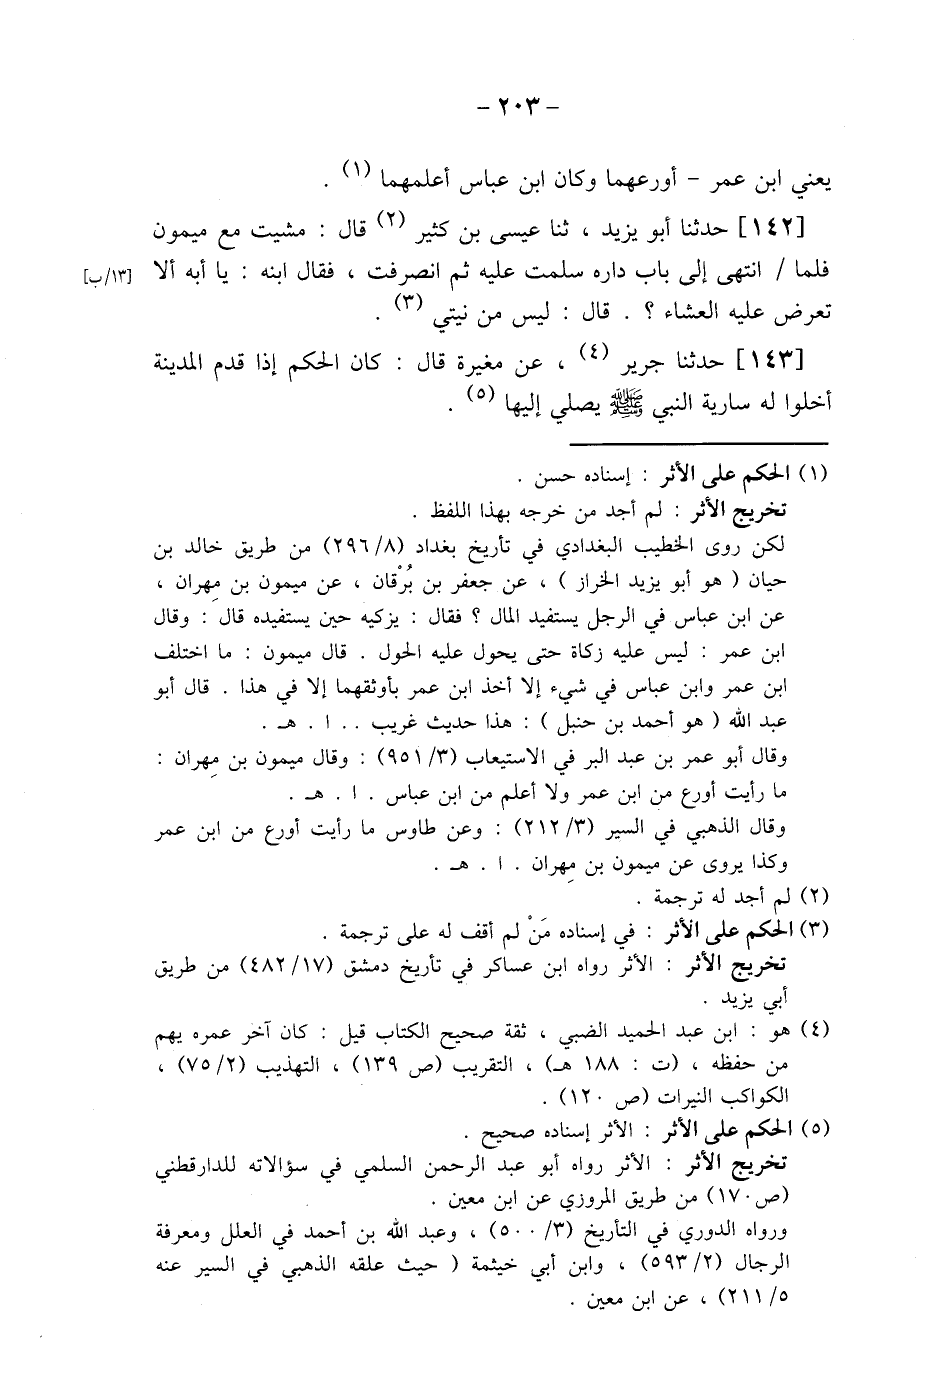 – ٢٠٣ –
يعني ابن عمر – أورعهما وكان ابن عباس أعلمهما (١) .
[١٤٢] حدثنا أبو يزيد ، ثنا عيسى بن كثير (٢) قال : مشيت مع ميمون
فلما / انتهى إلى باب داره سلمت عليه ثم انصرفت ، فقال ابنه : يا أبه ألا [١٣/ب]
تعرض عليه العشاء ؟ . قال : ليس من نيتي (٣) .
[١٤٣] حدثنا جرير (٤) ، عن مغيرة قال : كان الحكم إذا قدم المدينة
أخلوا له سارية النبي ﷺ يصلي إليها (٥) .
(١) الحكم على الأثر : إسناده حسن .
تخريج الأثر : لم أجد من خرجه بهذا اللفظ .
لكن روى الخطيب البغدادي في تأريخ بغداد (٢٩٦/٨) من طريق خالد بن
حيان ( هو أبو يزيد الخراز ) ، عن جعفر بن بُرْقان ، عن ميمون بن مِهران ،
عن ابن عباس في الرجل يستفيد المال ؟ فقال : يزكيه حين يستفيده قال : وقال
ابن عمر : ليس عليه زكاة حتى يحول عليه الحول . قال ميمون : ما اختلف
ابن عمر وابن عباس في شيء إلا أخذ ابن عمر بأوثقهما إلا في هذا . قال أبو
عبد الله ( هو أحمد بن حنبل ) : هذا حديث غريب . . ا . هـ .
وقال أبو عمر بن عبد البر في الاستيعاب (٩٥١/٣) : وقال ميمون بن مِهران :
ما رأيت أورع من ابن عمر ولا أعلم من ابن عباس . ا . هـ .
وقال الذهبي في السير (٢١٢/٣) : وعن طاوس ما رأيت أورع من ابن عمر
وكذا يروى عن ميمون بن مِهران . ا . هـ .
(٢) لم أجد له ترجمة .
(٣) الحكم على الأثر : في إسناده مَنْ لم أقف له على ترجمة .
تخريج الأثر : الأثر رواه ابن عساكر في تأريخ دمشق (٤٨٢/١٧) من طريق
أبي يزيد .
(٤) هو : ابن عبد الحميد الضبي ، ثقة صحيح الكتاب قيل : كان آخر عمره يهم
من حفظه ، (ت : ١٨٨ هـ) ، التقريب (ص ١٣٩) ، التهذيب (٧٥/٢) ،
الكواكب النيرات (ص ١٢٠) .
(٥) الحكم على الأثر : الأثر إسناده صحيح .
تخريج الأثر : الأثر رواه أبو عبد الرحمن السلمي في سؤالاته للدارقطني
(ص١٧٠) من طريق المروزي عن ابن معين .
ورواه الدوري في التأريخ (٥٠٠/٣) ، وعبد الله بن أحمد في العلل ومعرفة
الرجال (٥٩٣/٢) ، وابن أبي خيثمة ( حيث علقه الذهبي في السير عنه
٢١١/٥) ، عن ابن معين .